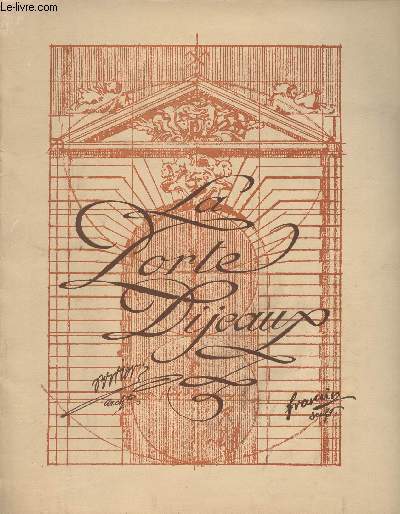 Le-livre.com
La
Porte
Dijeaux
francin
sculp.